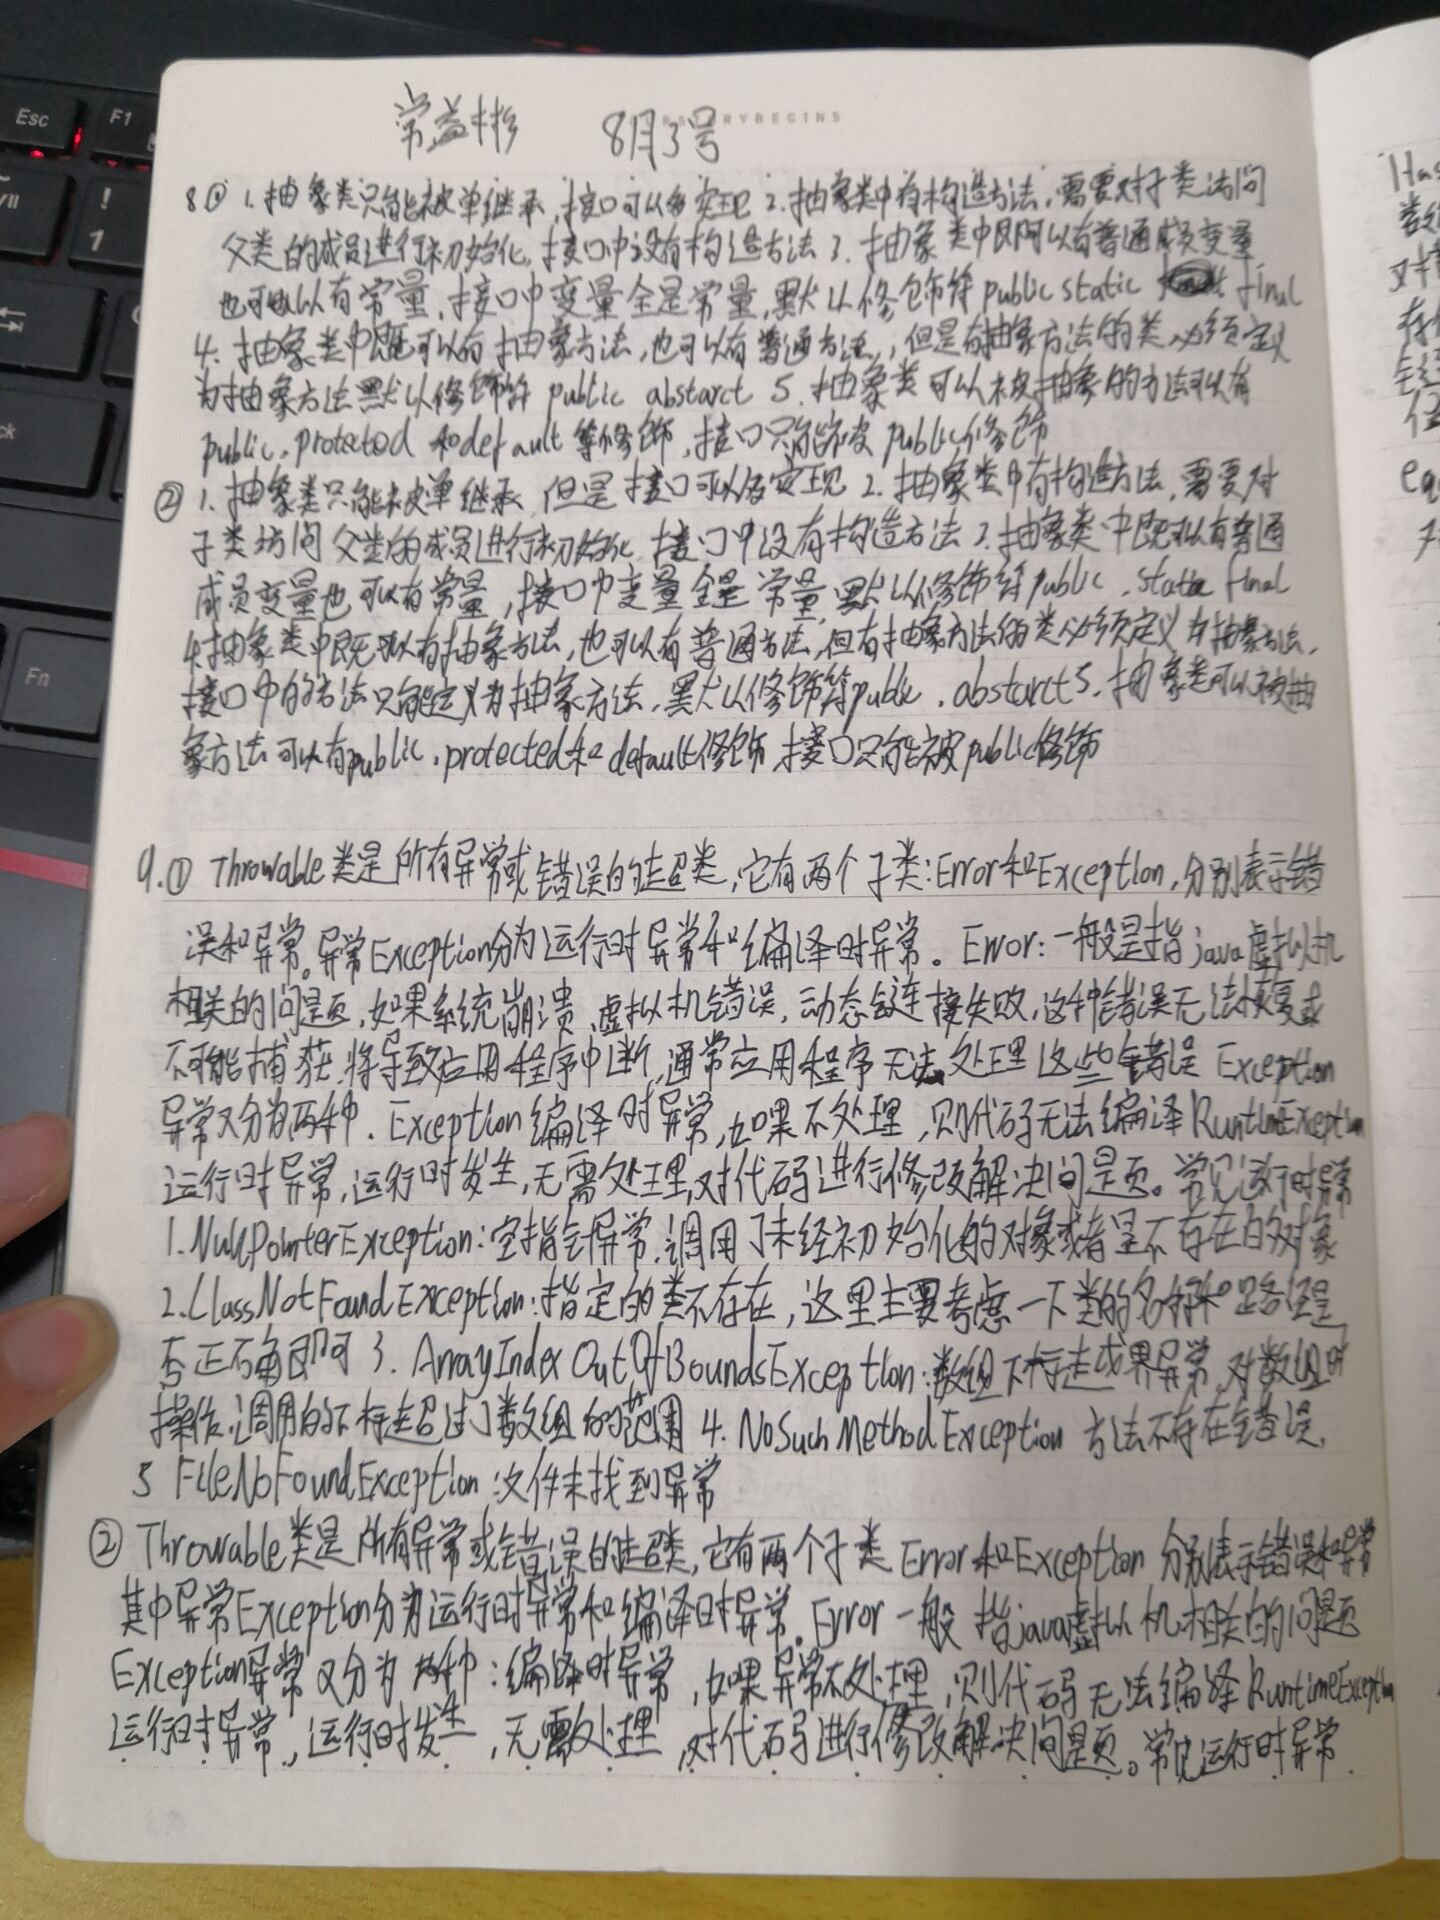 常益彬 8月3号
RYBEGINS
8① 1.抽象类只能被单继承,接口可以多实现 2.抽象类中有构造方法,需要对子类访问
父类的成员进行初始化,接口中没有构造方法 3.抽象类中既可以有普通成员变量
也可以有常量,接口中变量全是常量,默认修饰符public static final
4.抽象类中既可以有抽象方法,也可以有普通方法,但是有抽象方法的类必须定义
为抽象方法默认修饰符 public abstarct 5.抽象类可以被抽象的方法可以有
public.protected 和default等修饰,接口只能被public修饰
② 1.抽象类只能被单继承,但是接口可以多实现 2.抽象类中有构造方法,需要对
子类访问父类的成员进行初始化,接口中没有构造方法 3.抽象类中既可以有普通
成员变量也可以有常量,接口中变量全是常量,默认修饰符public.static final
4.抽象类中既可以有抽象方法,也可以有普通方法,但有抽象方法的类必须定义为抽象方法,
接口中的方法只能定义为抽象方法,默认修饰符public.abstarct 5.抽象类可以被抽
象方法可以有public.protected和default修饰,接口只能被public修饰
9.① Throwable类是所有异常或错误的超类,它有两个子类:Error和Exception,分别表示错
误和异常。异常Exception分为运行时异常和编译时异常。Error:一般是指java虚拟机
相关的问题,如果系统崩溃,虚拟机错误,动态链连接失败,这种错误无法恢复或
不可能捕获,将导致应用程序中断,通常应用程序无法处理这些错误 Exception
异常又分为两种.Exception编译时异常,如果不处理,则代码无法编译RuntimeException
运行时异常,运行时发生,无需处理,对代码进行修改解决问题。常见运行时异常
1.NullPointerException:空指针异常,调用了未经初始化的对象或者是不存在的对象
2.ClassNotFoundException:指定的类不存在,这里主要考虑一下类的名称和路径是
否正确即可 3. ArrayIndexOutOfBoundsException:数组下标越界异常,对数组时
操作,调用的下标超过了数组的范围 4. NoSuchMethodException 方法不存在错误,
5 FileNoFoundException:文件未找到异常
② Throwable类是所有异常或错误的超类,它有两个子类 Error和Exception 分别表示错误和异常
其中异常Exception分为运行时异常和编译时异常。Error一般指java虚拟机相关的问题
Exception异常又分为两种:编译时异常,如果异常不处理,则代码无法编译RuntimeException
运行时异常,运行时发生,无需处理,对代码进行修改解决问题。常见运行时异常.
Has
数
对
存
eq